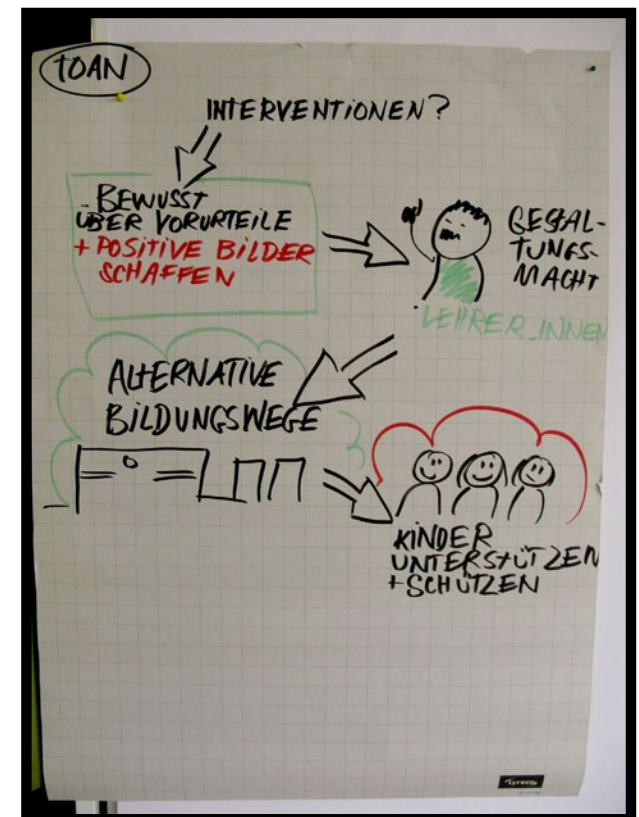 TOAN
INTERVENTIONEN?
BEWUSST
ÜBER VORURTEILE
+ POSITIVE BILDER
SCHAFFEN
GESTAL-
TUNGS-
MACHT
LEHRER_INNEN
ALTERNATIVE
BILDUNGSWEGE
KINDER
UNTERSTÜTZEN
+ SCHÜTZEN